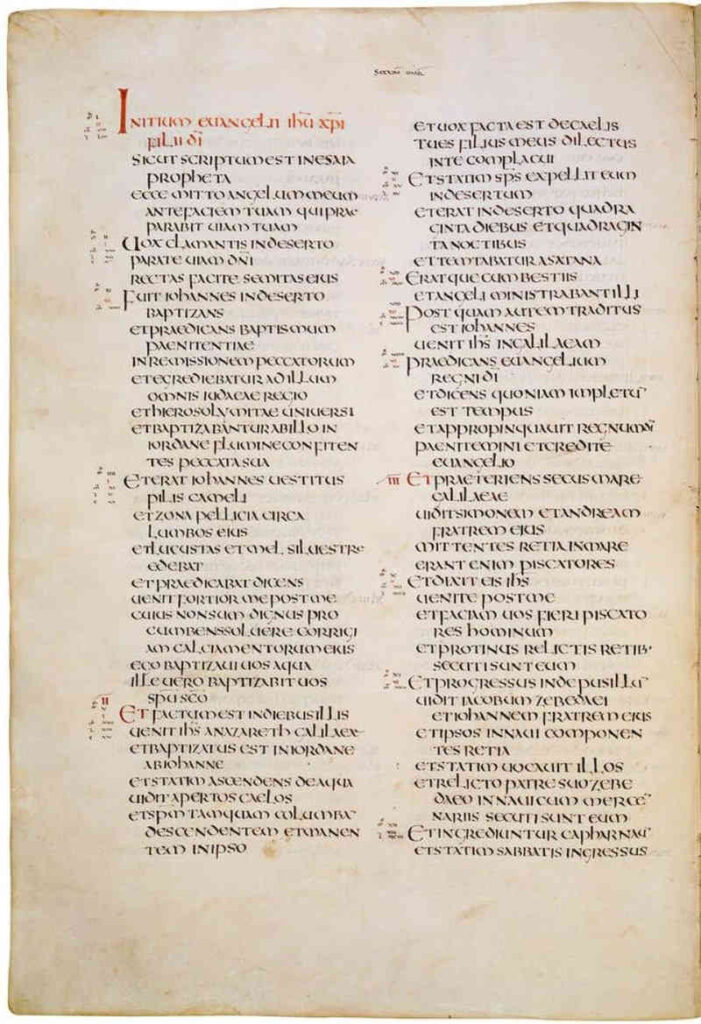 INITIUM EUANGELII IHU XPI
FILII DI
SICUT SCRIPTUM EST IN ESAIA
PROPHETA
ECCE MITTO ANGELUM MEUM
ANTE FACIEM TUAM QUI PRAE
PARABIT UIAM TUAM
UOX CLAMANTIS IN DESERTO
PARATE UIAM DNI
RECTAS FACITE SEMITAS EIUS
FUIT IOHANNES IN DESERTO
BAPTIZANS
ET PRAEDICANS BAPTISMUM
PAENITENTIAE
IN REMISSIONEM PECCATORUM
ET EGREDIEBATUR AD ILLUM
OMNIS IUDAEAE REGIO
ET HIEROSOLYMITAE UNIUERSI
ET BAPTIZABANTUR AB ILLO IN
IORDANE FLUMINE CONFITEN
TES PECCATA SUA
ET ERAT IOHANNES UESTITUS
PILIS CAMELI
ET ZONA PELLICIA CIRCA
LUMBOS EIUS
ET LUCUSTAS ET MEL SILUESTRE
EDEBAT
ET PRAEDICABAT DICENS
UENIT FORTIOR ME POST ME
CUIUS NON SUM DIGNUS PRO
CUMBENS SOLUERE CORRIGI
AM CALCIAMENTORUM EIUS
EGO BAPTIZAUI UOS AQUA
ILLE UERO BAPTIZABIT UOS
SPU SCO
II ET FACTUM EST IN DIEBUS ILLIS
UENIT IHS A NAZARETH GALILAEAE
ET BAPTIZATUS EST IN IORDANE
AB IOHANNE
ET STATIM ASCENDENS DE AQUA
UIDIT APERTOS CAELOS
ET SPM TAMQUAM COLUMBA
DESCENDENTEM ET MANEN
TEM IN IPSO
ET UOX FACTA EST DE CAELIS
TU ES FILIUS MEUS DILECTUS
IN TE COMPLACUI
ET STATIM SPS EXPELLIT EUM
IN DESERTUM
ET ERAT IN DESERTO QUADRA
GINTA DIEBUS ET QUADRAGIN
TA NOCTIBUS
ET TEMTABATUR A SATANA
ERATQUE CUM BESTIIS
ET ANGELI MINISTRABANT ILLI
POSTQUAM AUTEM TRADITUS
EST IOHANNES
UENIT IHS IN GALILAEAM
PRAEDICANS EUANGELIUM
REGNI DI
ET DICENS QUONIAM IMPLETU
EST TEMPUS
ET APPROPINQUAUIT REGNUM DI
PAENITEMINI ET CREDITE
EUANGELIO
III ET PRAETERIENS SECUS MARE
GALILAEAE
UIDIT SIMONEM ET ANDREAM
FRATREM EIUS
MITTENTES RETIA IN MARE
ERANT ENIM PISCATORES
ET DIXIT EIS IHS
UENITE POST ME
ET FACIAM UOS FIERI PISCATO
RES HOMINUM
ET PROTINUS RELICTIS RETIB·
SECUTI SUNT EUM
ET PROGRESSUS INDE PUSILLU
UIDIT IACOBUM ZEBEDAEI
ET IOHANNEM FRATREM EIUS
ET IPSOS IN NAUI COMPONEN
TES RETIA
ET STATIM UOCAUIT ILLOS
ET RELICTO PATRE SUO ZEBE
DAEO IN NAUI CUM MERCE
NARIIS SECUTI SUNT EUM
ET INGREDIUNTUR CAPHARNAU
ET STATIM SABBATIS INGRESSUS